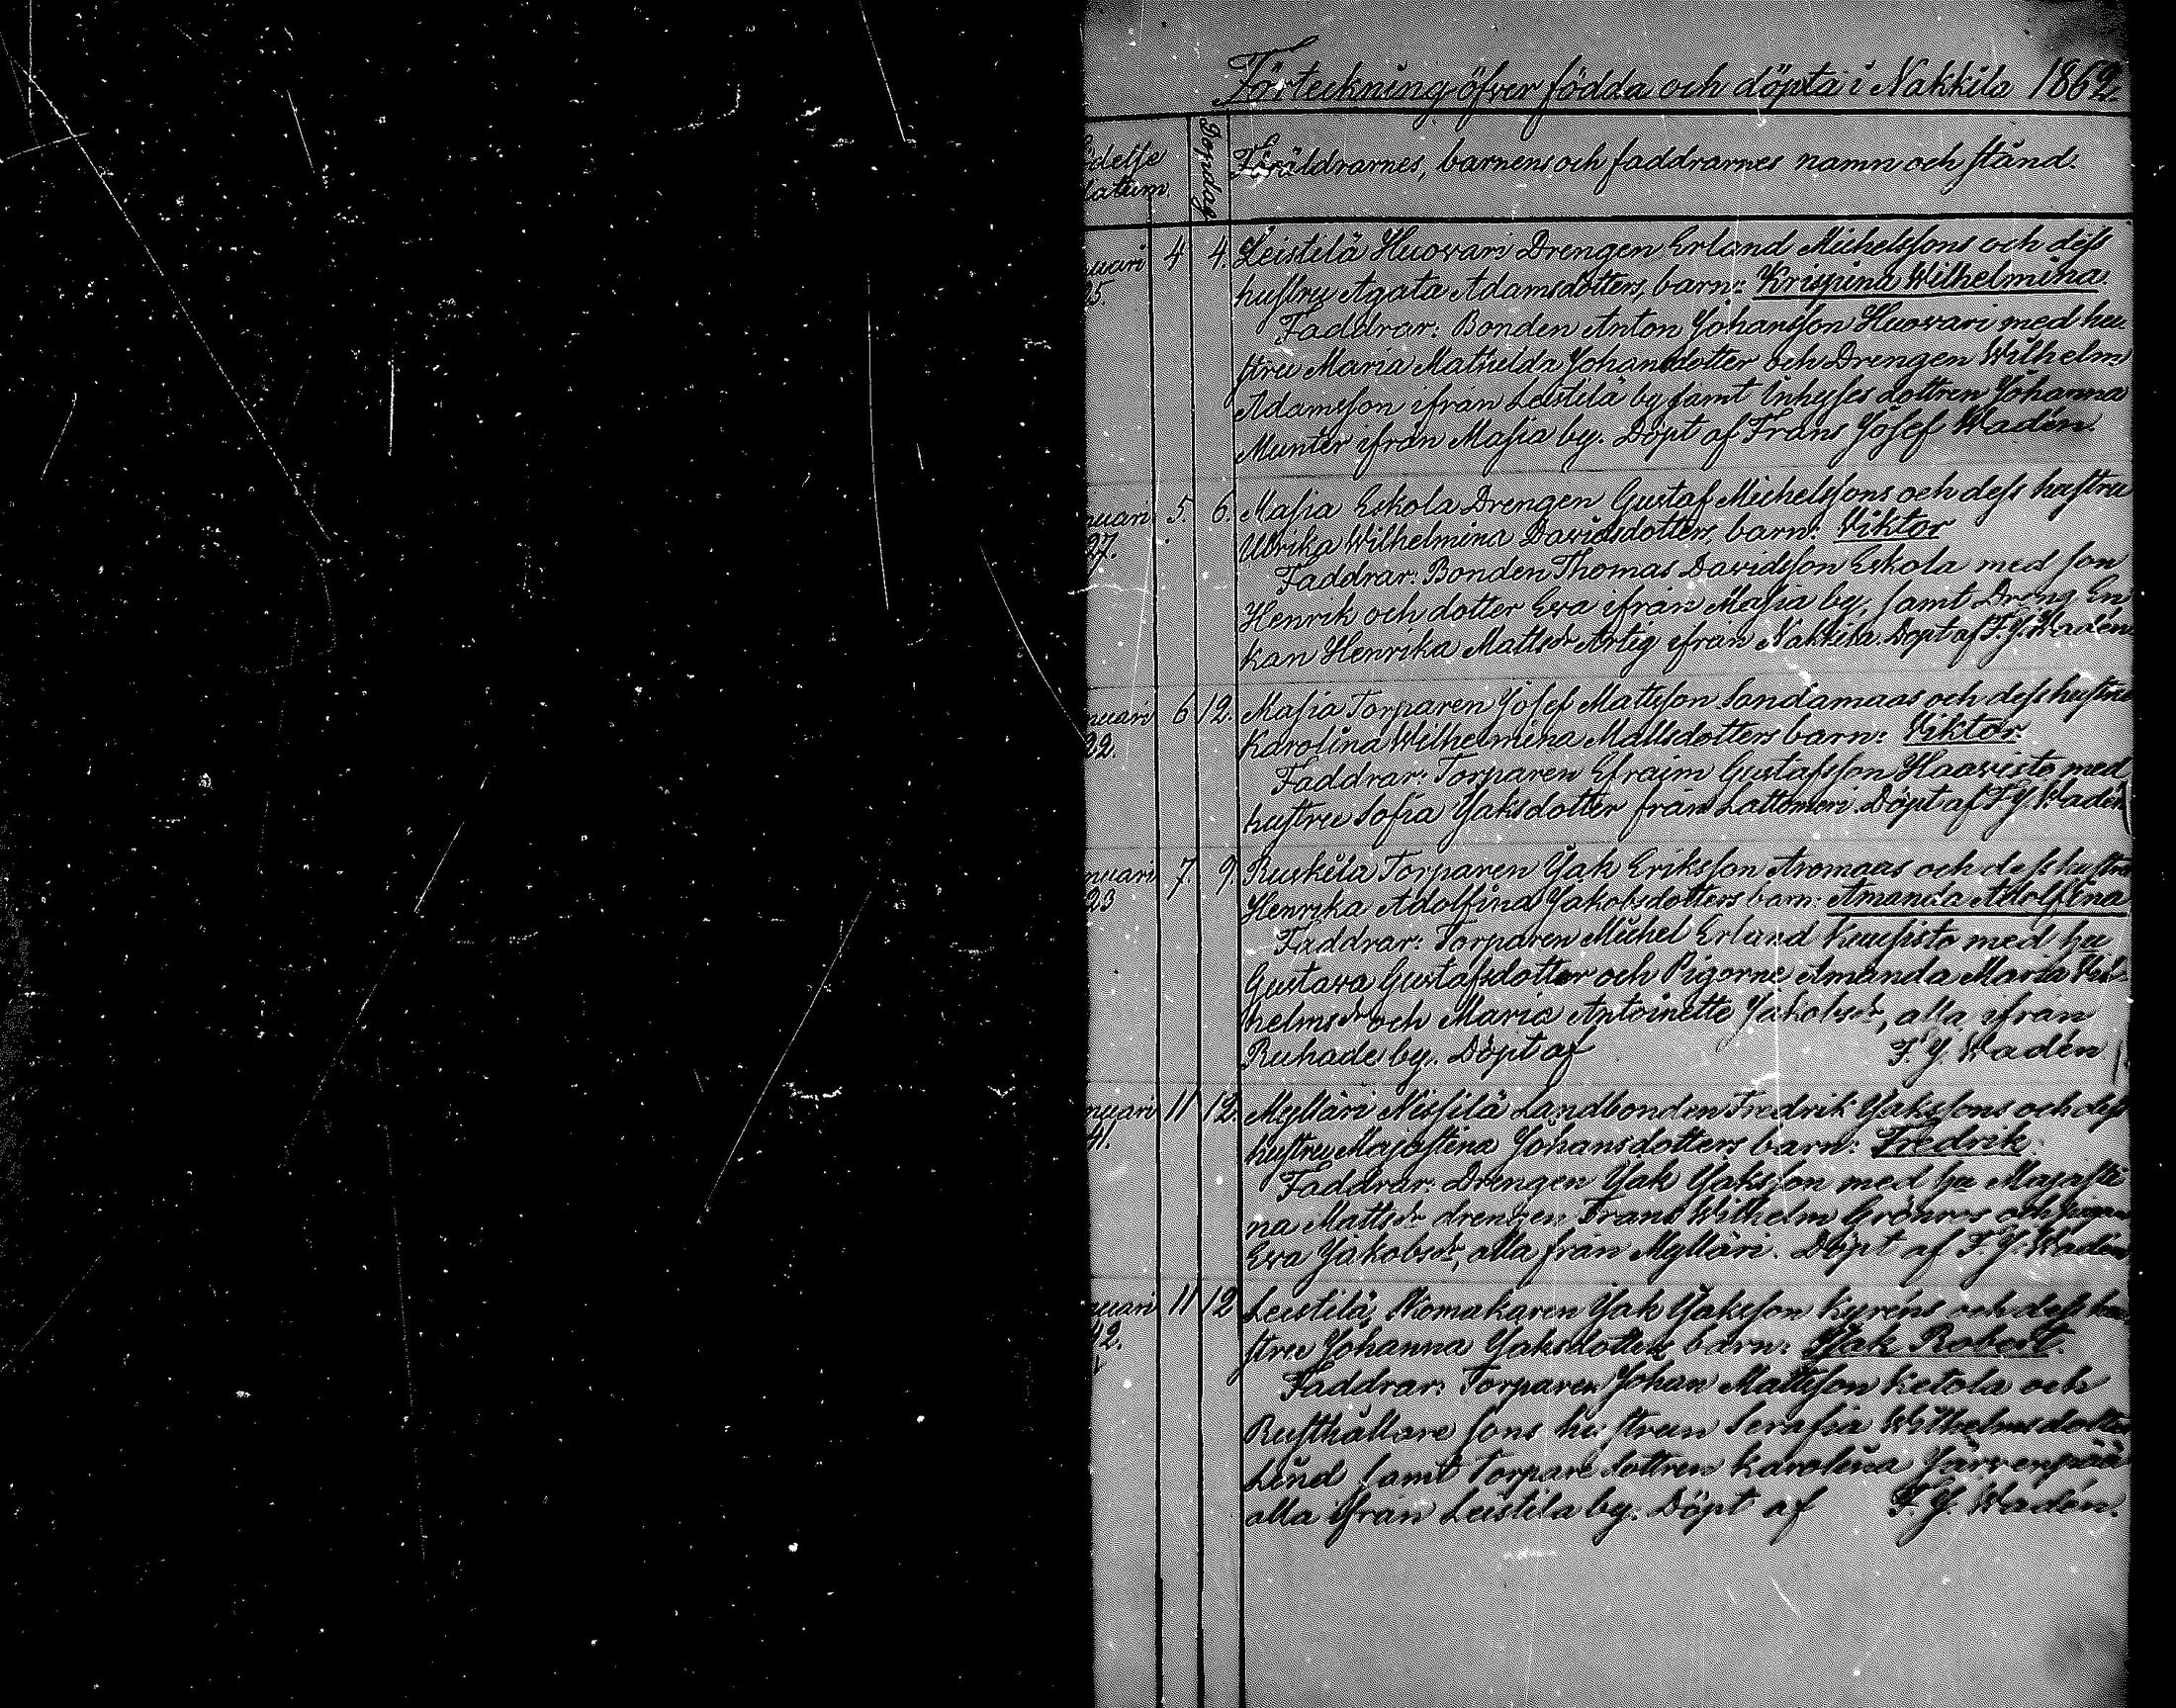 Förteckning öfver födda och döpta i Nakkila 1862.
delse
datum.
Dopdag
Föräldrarnes, barnens och faddrarnes namn och stånd.
nuari 4 4. Leistilä Huovari Drengen Erland Michelssons och dess
25. hustru Agata Adamsdotters, barn: Krispina Wilhelmina.
Faddrar: Bonden Anton Johansson Huovari med hu-
stru Maria Mathilda Johansdotter och Drengen Wilhelm
Adamsson ifrån Leistilä by samt Inhyses dottren Johanna
Munter ifrån Masia by. Döpt af Frans Josef Wadén.
nuari 5. 6. Masia Eskola Drengen Gustaf Michelssons och dess hustru
27. Ulrika Wilhelmina Davidsdotters, barn: Viktor
Faddrar: Bonden Thomas Davidsson Eskola med son
Henrik och dotter Eva ifrån Masia by, samt Dreng En
kan Henrika Mattsdr Artig ifrån Nakkila. Döpt af F. J. Wadén
nuari 6 12. Masia Torparen Josef Mattsson Sandamaas och dess hustru
22. Karolina Wilhelmina Mattsdotters barn: Viktor.
Faddrar: Torparen Efraim Gustafsson Haavisto med
hustru Sofia Jaksdotter från Lattomeri. Döpt af F. J. Wadén
nuari 7. 9. Ruskila Torparen Jak Eriksson Aromaas och dess hustru
23 Henrika Adolfina Jakobsdotters barn: Amanda Adolfina
Faddrar: Torparen Michel Erland Kuusisto med hu
Gustava Gustafsdotter och Pigorne Amanda Maria Wil-
helmsdr och Maria Antoinette Jakobsdr, alla ifrån
Ruhade by. Döpt af F. J. Wadén
nuari 11 12. Mylläri Nissilä Landbonden Fredrik Jakssons och dess
41. hustru Majastina Johansdotters barn: Fredrik.
Faddrar: Drengen Jak Jaksson med hu Majasti
na Mattsdr drengen Frans Wilhelm Grönros och pigan
Eva Jakobsdr, alla från Mylläri. Döpt af F. J. Wadén
nuari 11 12 Leistilä, Skomakaren Jak Jaksson Kyréns och dess hu-
42. stru Johanna Jaksdotters barn: Jak Robert.
Faddrar: Torparen Johan Mattsson Ketola och
Rusthållare sons hustrun Serafia Wilhelmsdotter
Lind samt Torpare dottren Karolina Järvenpää
alla ifrån Leistila by. Döpt af F. J. Wadén.